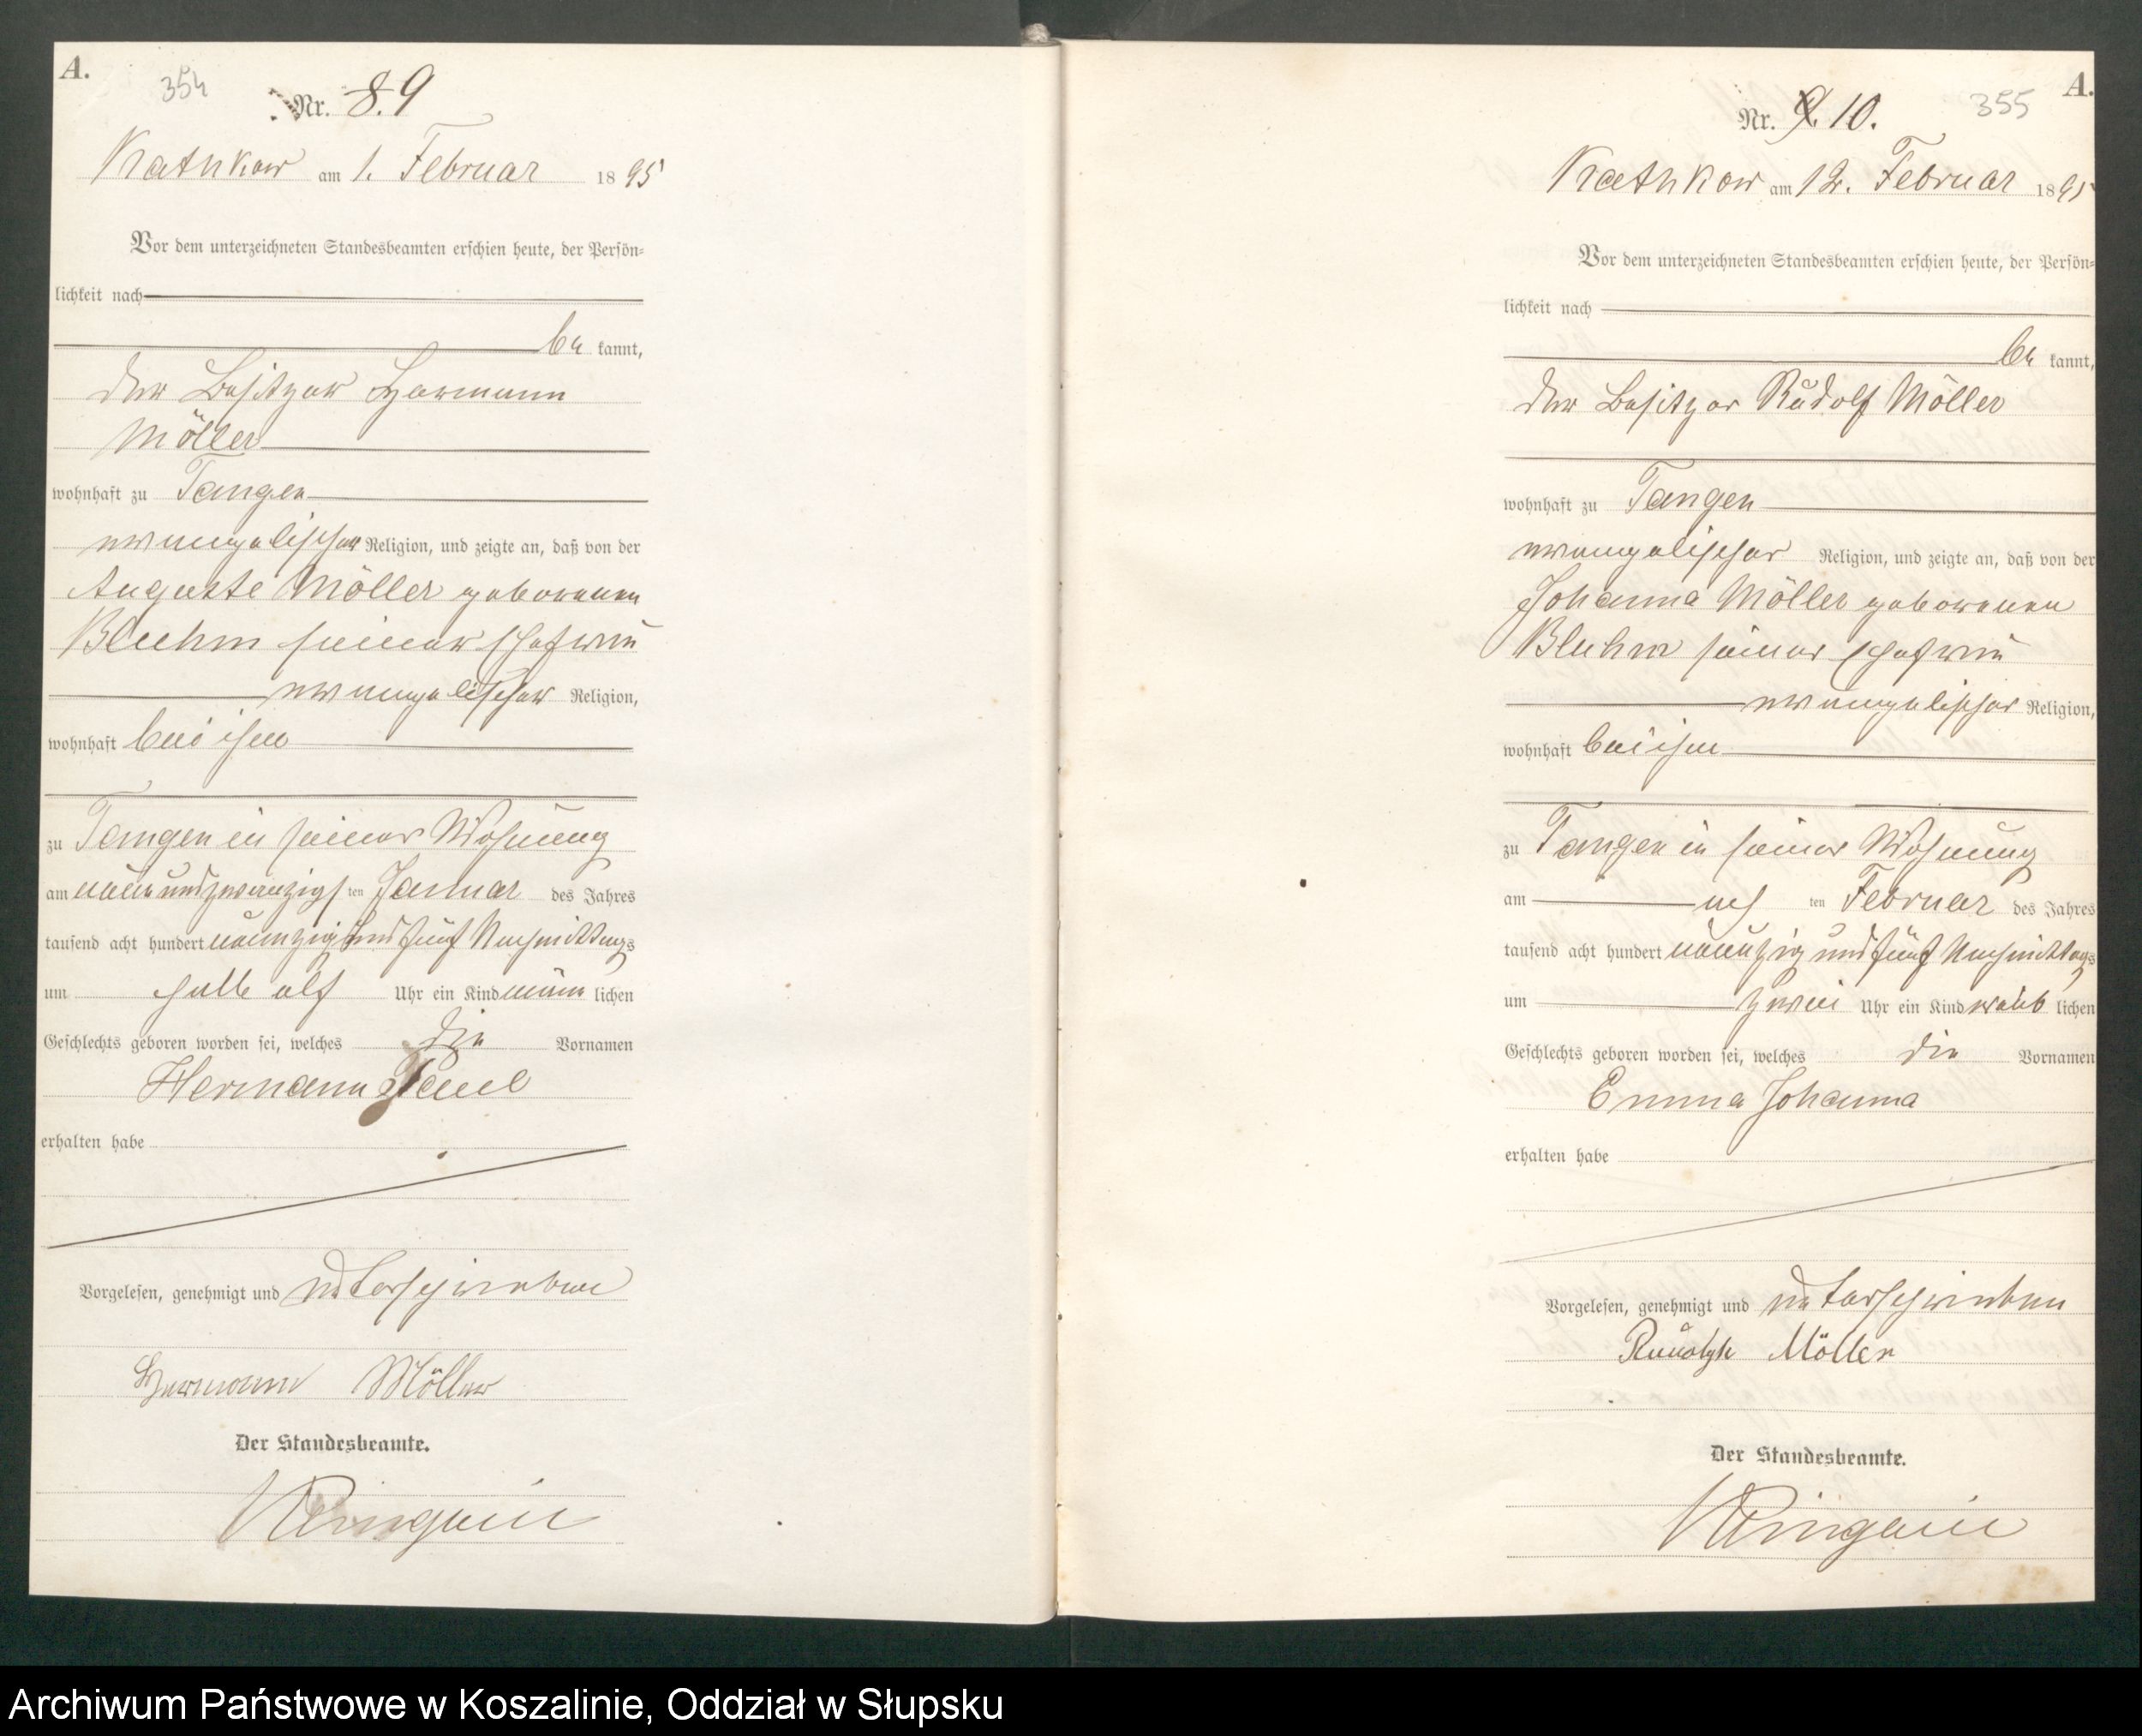 A.
354
Nr. 8. 9
Kathkow am 1. Februar 1895
Vor dem unterzeichneten Standesbeamten erschien heute, der Persön-
lichkeit nach
be kannt,
der Besitzer Hermann
Möller
wohnhaft zu Tangen
evangelischer Religion, und zeigte an, daß von der
Auguste Möller geborenen
Bluhm seiner Ehefrau
evangelischer Religion,
wohnhaft bei ihm
zu Tangen in seiner Wohnung
am neunundzwanzigsten Januar des Jahres
tausend acht hundert neunzig und fünf Nachmittags
um halb elf Uhr ein Kind männlichen
Geschlechts geboren worden sei, welches die Vornamen
Hermann Paul
erhalten habe
Vorgelesen, genehmigt und unterschrieben
Hermann Möller
Der Standesbeamte.
A.
355
Nr. 9. 10.
Kathkow am 12. Februar 1895
Vor dem unterzeichneten Standesbeamten erschien heute, der Persön-
lichkeit nach
be kannt,
der Besitzer Rudolf Möller
wohnhaft zu Tangen
evangelischer Religion, und zeigte an, daß von der
Johanna Möller geborenen
Bluhm seiner Ehefrau
evangelischer Religion,
wohnhaft bei ihm
zu Tangen in seiner Wohnung
am achten Februar des Jahres
tausend acht hundert neunzig und fünf Nachmittags
um zwei Uhr ein Kind weiblichen
Geschlechts geboren worden sei, welches die Vornamen
Emma Johanna
erhalten habe
Vorgelesen, genehmigt und unterschrieben
Rudolph Möller
Der Standesbeamte.
Archiwum Państwowe w Koszalinie, Oddział w Słupsku